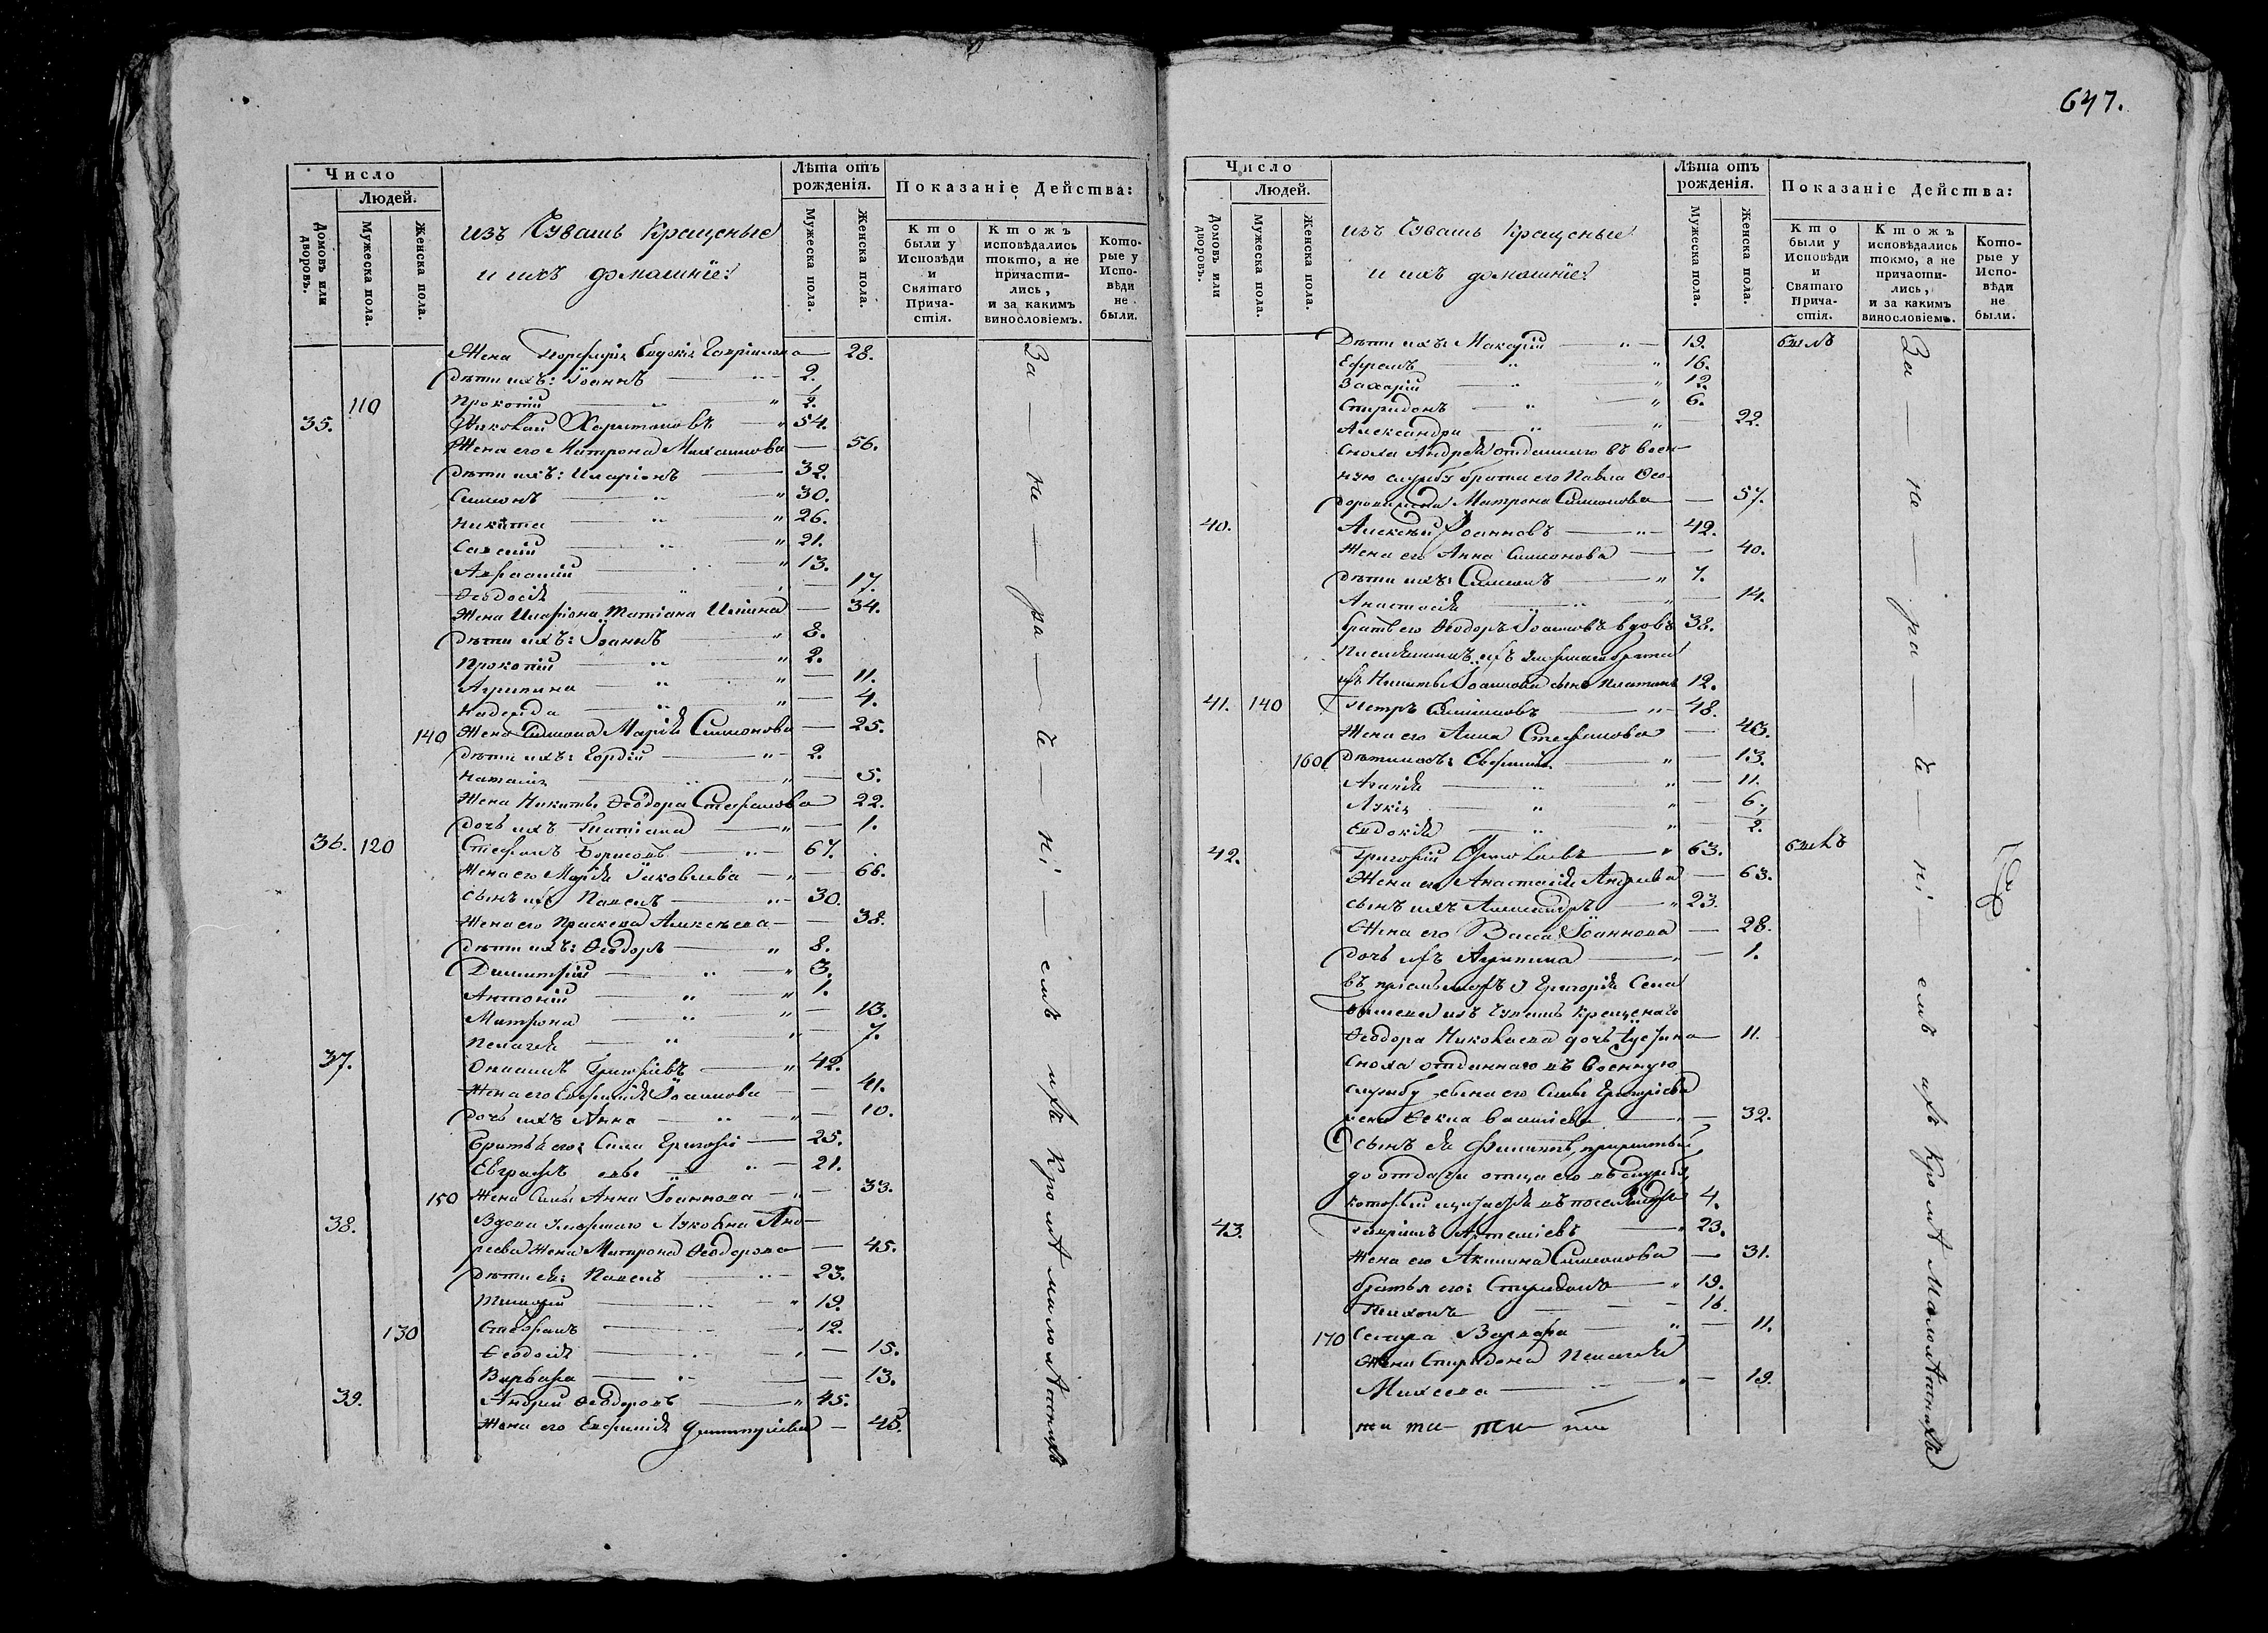 Число
Людей.
Домовъ или дворовъ.
Мужеска пола.
Женска пола.
изъ Чувашъ Крещеные
и ихъ домашніе:
Лѣта отъ рожденія.
Мужеска пола.
Женска пола.
Показаніе Действа:
Кто были у Исповѣди и Святаго Причастія.
Ктожъ исповѣдались токмо, а не причастились, и за какимъ винословіемъ.
Которые у Исповѣди не были.
Жена Порфирія Евдокія Гавріилова — 28.
Дѣти ихъ: Іоаннъ — 2.
110 Прокопій 1/2.
35. Николай Харитоновъ 54.
Жена его Матрона Михаилова — 56.
Дѣти ихъ: Иларіонъ — 32.
Симеонъ — 30.
Никита — 26.
Савелій — 21.
13.
Ѳеодосія — 17.
Жена Иларіона Татіана Ильина — 34.
Дѣти ихъ: Іоаннъ 8.
Прокопій — 2.
Агрипина — 11.
Надежда — 4.
140 Жена Симеона Марія Симеонова — 25.
Дѣти ихъ: Гордій — 2.
Наталія — 5.
Жена Никиты Ѳеодора Стефанова 22.
Дочь ихъ Татіана — 1.
36. 120 Стефанъ Борисовъ — 67.
Жена его Марія Іаковлева — 66.
Сынъ ихъ Павелъ — 30.
Жена его Праскева Алексѣева — 38.
Дѣти ихъ: Ѳеодоръ — 8.
Димитрій — 3.
Антоній — 1.
Матрона — 13.
Пелагея — 7.
37. Григорьевъ — 42.
Жена его Евфимія Іоаннова — 41.
Дочь ихъ Анна — 10.
Братья его: Сила Григорьевы — 25.
Евграфъ — 21.
150 Жена Силы Анна Іоаннова — 33.
38. Вдова умершаго Андреева жена Матрона Ѳеодорова — 45.
Дѣти ея: Павелъ — 23.
Тимофей — 19.
130 Стефанъ — 12.
Ѳеодосія — 15.
Варвара — 13.
39. Андрей Ѳеодоровъ — 45.
Жена его Евфимія Димитріева — 45.
За — не — ра — де — ні — емъ ихъ кромѣ малолѣтнихъ
647.
Число
Людей.
Домовъ или дворовъ.
Мужеска пола.
Женска пола.
изъ Чувашъ Крещеные
и ихъ домашніе:
Лѣта отъ рожденія.
Мужеска пола.
Женска пола.
Показаніе Действа:
Кто были у Исповѣди и Святаго Причастія.
Ктожъ исповѣдались токмо, а не причастились, и за какимъ винословіемъ.
Которые у Исповѣди не были.
Дѣти ихъ: Макарій — 19. былъ
Ефремъ — 16.
Захарій — 12.
Спиридонъ — 6.
Александра — 22.
Сноха Андрея отданнаго въ воен-
ную службу брата его Павла Ѳео-
дорова жена Матрона Симеонова — 57.
40. Алексѣй Іоанновъ — 42.
Жена его Анна Симеонова — 40.
Дѣти ихъ: Симеонъ — 7.
Анастасія — 14.
братъ его Ѳеодоръ Іоанновъ вдовъ 38.
Племянникъ ихъ умершаго брата
ихъ Никиты Іоаннова сынъ Платонъ 12.
41. 140 Петръ — 48.
Жена его Анна Стефанова — 43.
160 Дѣти ихъ: Евфимія — 13.
Агапія — 11.
Лукія — 6.
Евдокія — 1/2.
42. Григорій — 63. былъ
Жена его Анастасія Андреева — 63.
Сынъ ихъ Александръ — 23.
Жена его Васса Іоаннова — 28.
Дочь ихъ Агрипина — 1.
изъ Чувашъ Крещенаго
Ѳеодора Николаева дочь — 11.
Сноха отданнаго въ военную
службу сына его Силы Григорьева
жена Ѳекла Васильева — 32.
Сынъ ея Филиппъ, прижитый
до отдачи отца его въ службу,
который 4.
43. Гавріилъ Артеміевъ — 23.
Жена его Акилина Симеонова — 31.
братья его: Спиридонъ — 19.
Тихонъ — 16.
170 Сестра Варвара — 11.
Жена Спиридона Пелагея
Михеева — 19.
За — не — ра — де — ні — емъ ихъ кромѣ малолѣтнихъ